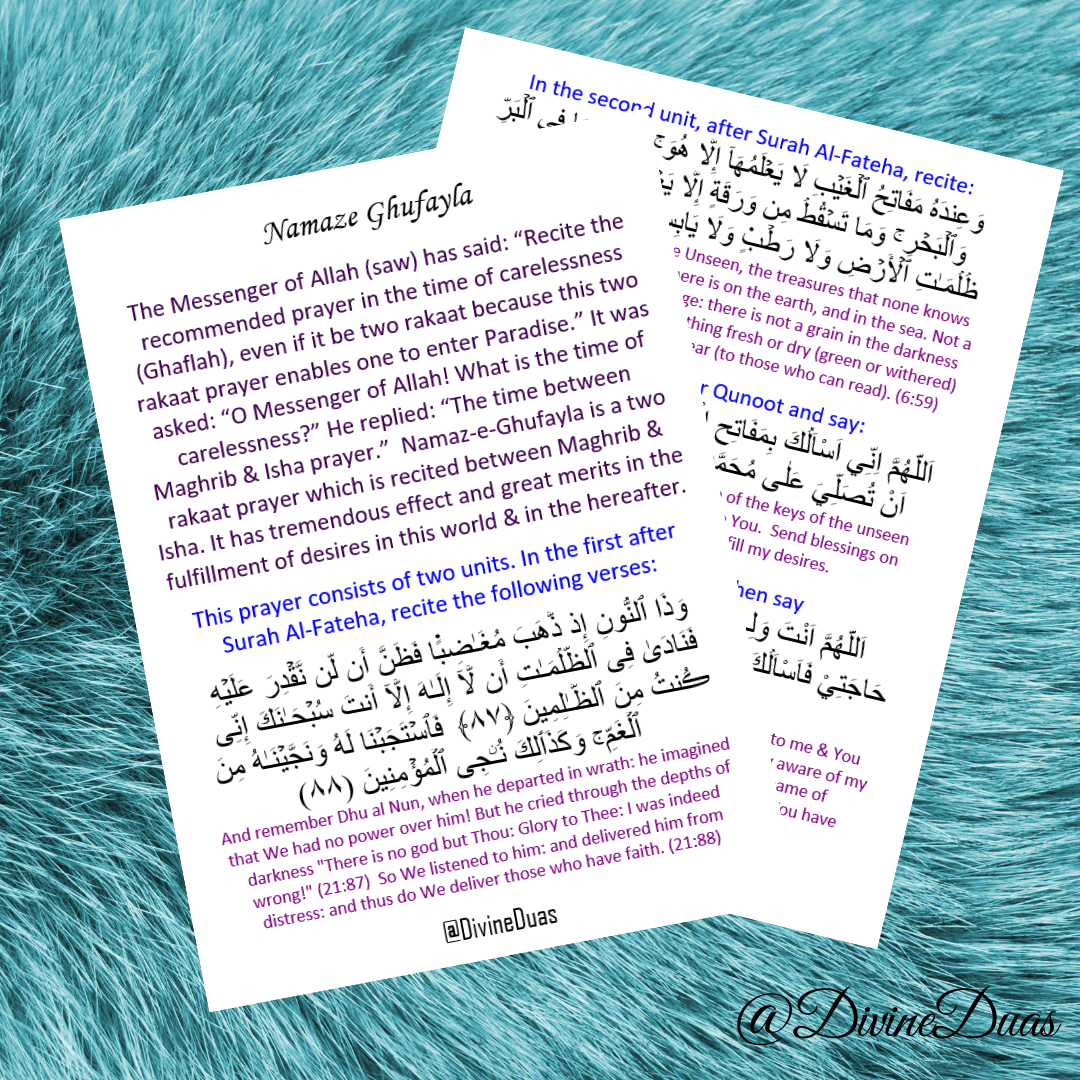 Namaze Ghufayla
The Messenger of Allah (saw) has said: “Recite the
recommended prayer in the time of carelessness
(Ghaflah), even if it be two rakaat because this two
rakaat prayer enables one to enter Paradise.” It was
asked: “O Messenger of Allah! What is the time of
carelessness?” He replied: “The time between
Maghrib & Isha prayer.” Namaz-e-Ghufayla is a two
rakaat prayer which is recited between Maghrib &
Isha. It has tremendous effect and great merits in the
fulfillment of desires in this world & in the hereafter.
This prayer consists of two units. In the first after
Surah Al-Fateha, recite the following verses:
وَذَا ٱلنُّونِ إِذ ذَّهَبَ مُغَـٰضِبًۭا فَظَنَّ أَن لَّن نَّقْدِرَ عَلَيْهِ
فَنَادَىٰ فِى ٱلظُّلُمَـٰتِ أَن لَّآ إِلَـٰهَ إِلَّآ أَنتَ سُبْحَـٰنَكَ إِنِّى
كُنتُ مِنَ ٱلظَّـٰلِمِينَ ﴿٨٧﴾ فَٱسْتَجَبْنَا لَهُۥ وَنَجَّيْنَـٰهُ مِنَ
ٱلْغَمِّ ۚ وَكَذَٰلِكَ نُـۨجِى ٱلْمُؤْمِنِينَ (٨٨)
And remember Dhu al Nun, when he departed in wrath: he imagined
that We had no power over him! But he cried through the depths of
darkness "There is no god but Thou: Glory to Thee: I was indeed
wrong!" (21:87) So We listened to him: and delivered him from
distress: and thus do We deliver those who have faith. (21:88)
@DivineDuas
In the second unit, after Surah Al-Fateha, recite:
وَعِندَهُۥ مَفَاتِحُ ٱلْغَيْبِ لَا يَعْلَمُهَآ إِلَّا هُوَ ۚ فِى ٱلْبَرِّ
وَٱلْبَحْرِ ۚ وَمَا تَسْقُطُ مِن وَرَقَةٍ إِلَّا
ظُلُمَـٰتِ ٱلْأَرْضِ وَلَا رَطْبٍۢ وَلَا
Unseen, the treasures that none knows
there is on the earth, and in the sea. Not a
there is not a grain in the darkness
fresh or dry (green or withered)
(to those who can read). (6:59)
Qunoot and say:
اَللّٰهُمَّ اِنِّي اَسْأَلُكَ بِمَفَاتِحِ
اَنْ تُصَلِّيَ عَلٰى
of the keys of the unseen
You. Send blessings on
my desires.
then say
اَللّٰهُمَّ اَنْتَ
حَاجَتِيْ فَاَسْأَلُكَ
to me & You
aware of my
of
have
@DivineDuas